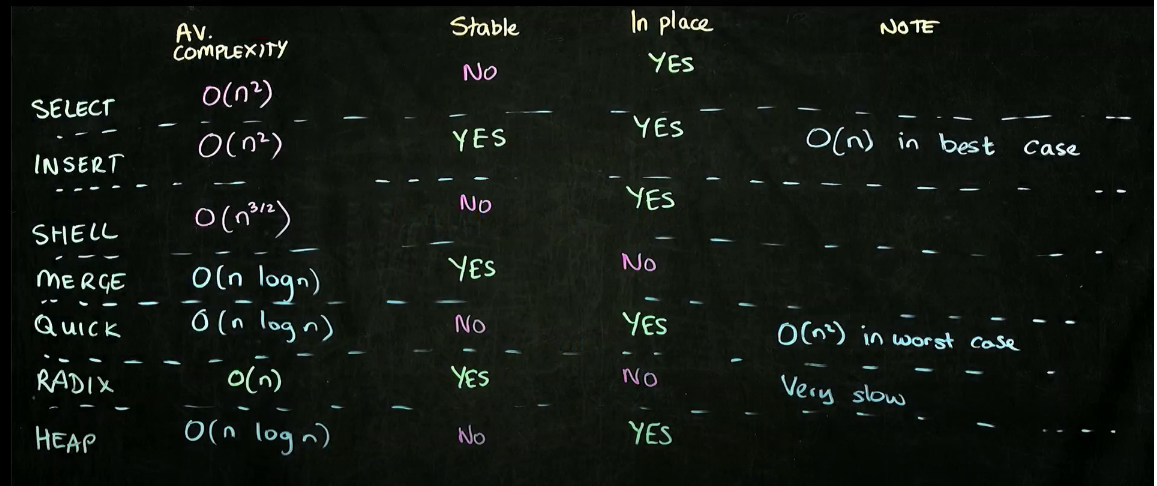 AV. COMPLEXITY Stable In place NOTE
SELECT O(n²) NO YES
INSERT O(n²) YES YES O(n) in best case
SHELL O(n^3/2) NO YES
MERGE O(n logn) YES NO
QUICK O(n logn) NO YES O(n²) in worst case
RADIX O(n) YES NO Very slow
HEAP O(n logn) No YES